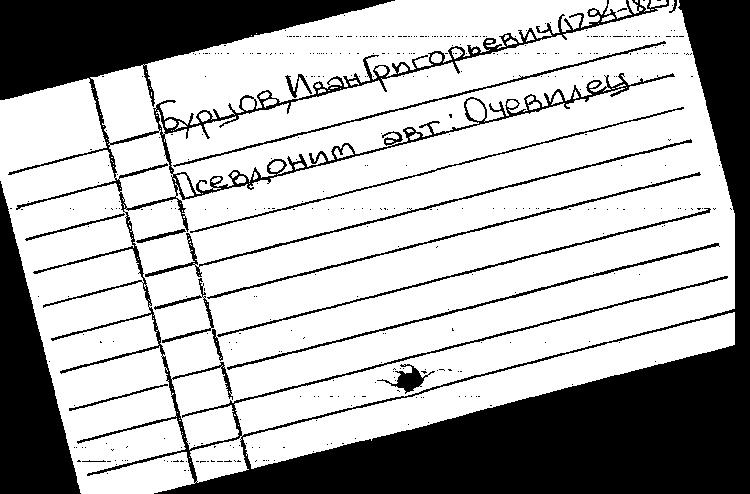 Бурцов, Иван Григорьевич (1794-1829)
Псевдоним авт.: Очевидец.